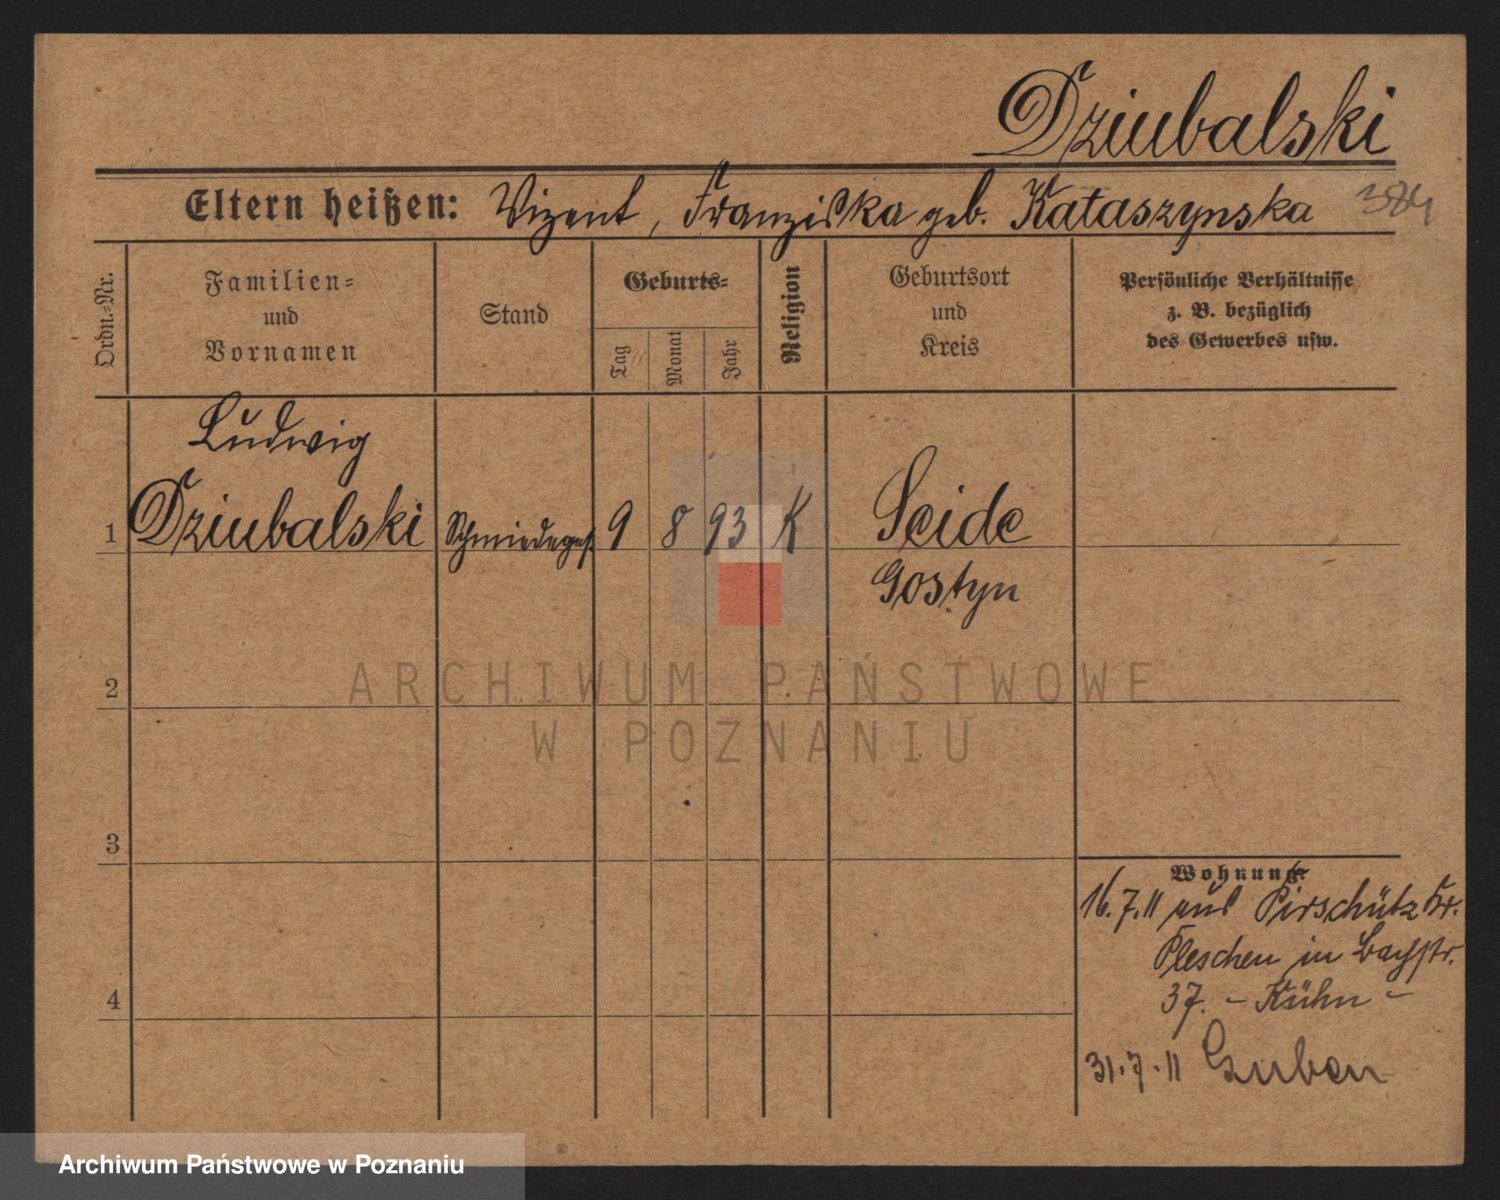 Dziubalski
Eltern heißen: Vizent, Franziska geb. Kataszynska 384
Ordn.-Nr.
Familien-
und
Vornamen
Stand
Geburts-
Tag
Monat
Jahr
Religion
Geburtsort
und
Kreis
Persönliche Verhältnisse
z. B. bezüglich
des Gewerbes usw.
Ludwig
1 Dziubalski Schmiedeges. 9 8 93 K Seide
Gostyn
ARCHIWUM PAŃSTWOWE
W POZNANIU
2
3
Wohnung:
16.7.11 aus Pirschütz Kr.
Pleschen in Bachstr.
37. - Kühn -
4
31.7.11 Guben
Archiwum Państwowe w Poznaniu